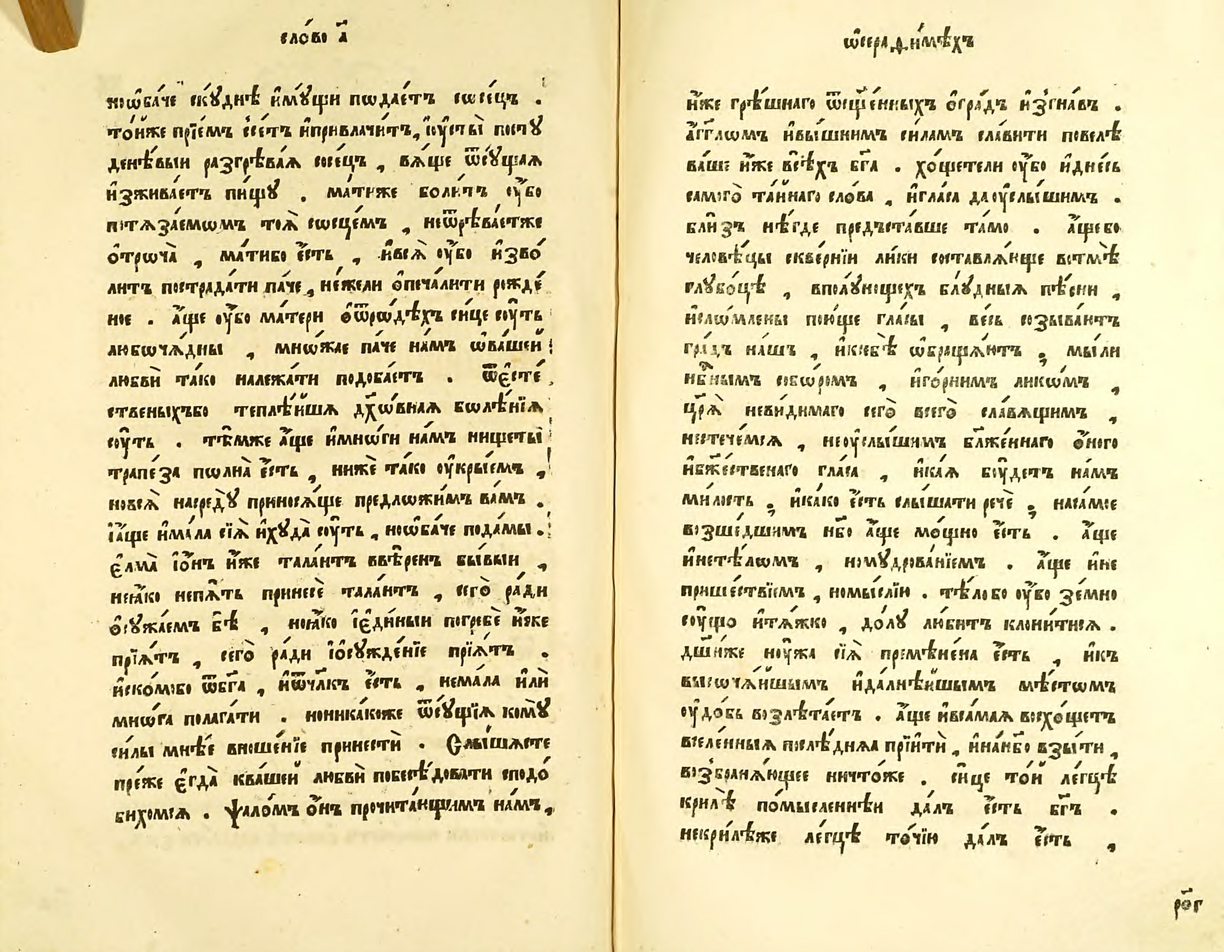 сло́во а҃
но̀ѡба́че скꙋ́днѣ и҆мꙋ́щи подае́тъ сосе́цъ .
то́йже прїе́мъ ссе́тъ и҆привлачи́тъ, и҆ꙋсты̀ постꙋ
дене́выи разгрѣва́ѧ сосе́цъ , вѧ́ще ѿсꙋ́щаѧ
и҆зжива́етъ пи́щꙋ . ма́тиже боли́тъ ᲂу҆́бо
и҆стѧза́емомъ тоѧ̀ сосце́мъ , неѿрѣва́етже
ѻ҆троча̀ , ма́тибо є҆́сть , и҆всѧ̀ ᲂу҆́бо и҆зво́
литъ пострада́ти па́че , не́жели ѻ҆печа́лити рожде́
ное . а҆́ще ᲂу҆́бо ма́тери ѡ҆ѿро́дѣхъ си́це сꙋ́ть
любоча́дны , мно́жае па́че на́мъ ѡ҆ва́шей
любвѝ та́ко належа́ти подоба́етъ . ѿє҆сте́
ственыхъбо теплѣ́йша дх҃о́внаѧ болѣ́нїѧ
сꙋ́ть . тѣ́мже а҆́ще и҆мно́ги на́мъ нищеты̀
трапе́за полна̀ є҆́сть , нижѐ та́ко ᲂу҆кры́емъ ,
новсѧ̀ насредꙋ̀ принося́ще предложи́мъ ва́мъ .
а҆́ще и҆ма́ла сїѧ̀ и҆хꙋда̀ сꙋ́ть , но̀ѡба́че пода́мы .
є҆лма̀ і҆ѻ́нъ и҆́же тала́нтъ ввѣ́ренъ бы́выи ,
неꙗ҆́ко непѧ́ть принесѐ тала́нтъ , сего̀ ра́ди
ѻ҆сꙋжа́емъ бѣ̀ , ноꙗ҆́ко і҆є҆ди́ныи погребѐ и҆́же
прїѧ́тъ , сего̀ ра́ди і҆ѻ҆сꙋжде́нїе прїѧ́тъ .
и҆ско́мобо ѿбг҃а , и҆ѿчл҃къ є҆́сть , нема́ла и҆лѝ
мно́га полага́ти . нони́какоже ѿсꙋ́щїѧ комꙋ̀
си́лы мнѣ́е вноше́нїе принестѝ . Слы́шасте
пре́же є҆гда̀ ква́шей любвѝ побесѣ́довати сподо́
бихомсѧ . ѱало́мъ ѻ҆́нъ прочита́ющимъ на́мъ ,
ѡ҆серафи́мѣхъ
и҆́же грѣ́шнаго ѿсщ҃е́нныхъ ѻ҆гра́дъ и҆згна́въ .
а҆́гг҃ломъ и҆вы́шнимъ си́ламъ сла́вити повелѣ̀
ва́ше и҆́же всѣ́хъ бг҃а . хо́щетели ᲂу҆́бо и҆дне́сь
самого̀ та́йнаго сло́ва , и҆гла́са даᲂу҆слы́шимъ .
бли́зъ нѣ́где предъста́вше та́мо . а҆́щебо
человѣ́цы скве́рнїи ли́ки составлѧ́юще вотмѣ̀
глꙋбо́цѣ , вполꙋ́нощехъ блꙋ́дныѧ пѣ́сни ,
и҆сло́млены пою́ще гла́сы , ве́сь созыва́ютъ
гра́дъ на́шъ , и҆ксебѣ̀ ѡ҆браща́ютъ , мы́ли
нб҃нымъ собо́ромъ , и҆го́рнимъ лико́мъ ,
цр҃ѧ̀ неви́димаго сего̀ всего̀ сла́вящимъ ,
нестече́мсѧ , неᲂу҆слы́шимъ бл҃же́ннаго ѻ҆́ного
и҆бж҃е́ственаго гла́са , и҆ка́ѧ бꙋ́детъ на́мъ
ми́лость , и҆ка́ко є҆́сть слы́шати речѐ , наса́мое
возше́дшимъ нб҃о а҆́ще мо́щно є҆́сть . а҆́ще
и҆нетѣ́ломъ , номꙋдрова́нїемъ . а҆́ще и҆не
прише́ствїемъ , номы́слїю . тѣ́лобо ᲂу҆́бо зе́мно
сꙋ́що и҆тѧ́жко , до́лꙋ лю́битъ клони́тисѧ .
дш҃и́же нꙋ́жа сїѧ̀ премѣ́нена є҆́сть , и҆къ
высоча́йшымъ и҆дальнѣ́йшымъ мѣ́стомъ
ᲂу҆до́бь возлѣта́етъ . а҆́ще и҆вса́маѧ восхо́щетъ
вселе́нныѧ послѣ́днѧѧ прїитѝ , и҆на́нб҃о взы́ти ,
возбранѧ́ющее ничто́же . си́це то́й ле́гцѣ
крилѣ̀ помы́сленнѣи да́лъ є҆́сть бг҃ъ .
некри́лѣже ле́гцѣ то́чїю да́лъ є҆́сть ,
ро҃г